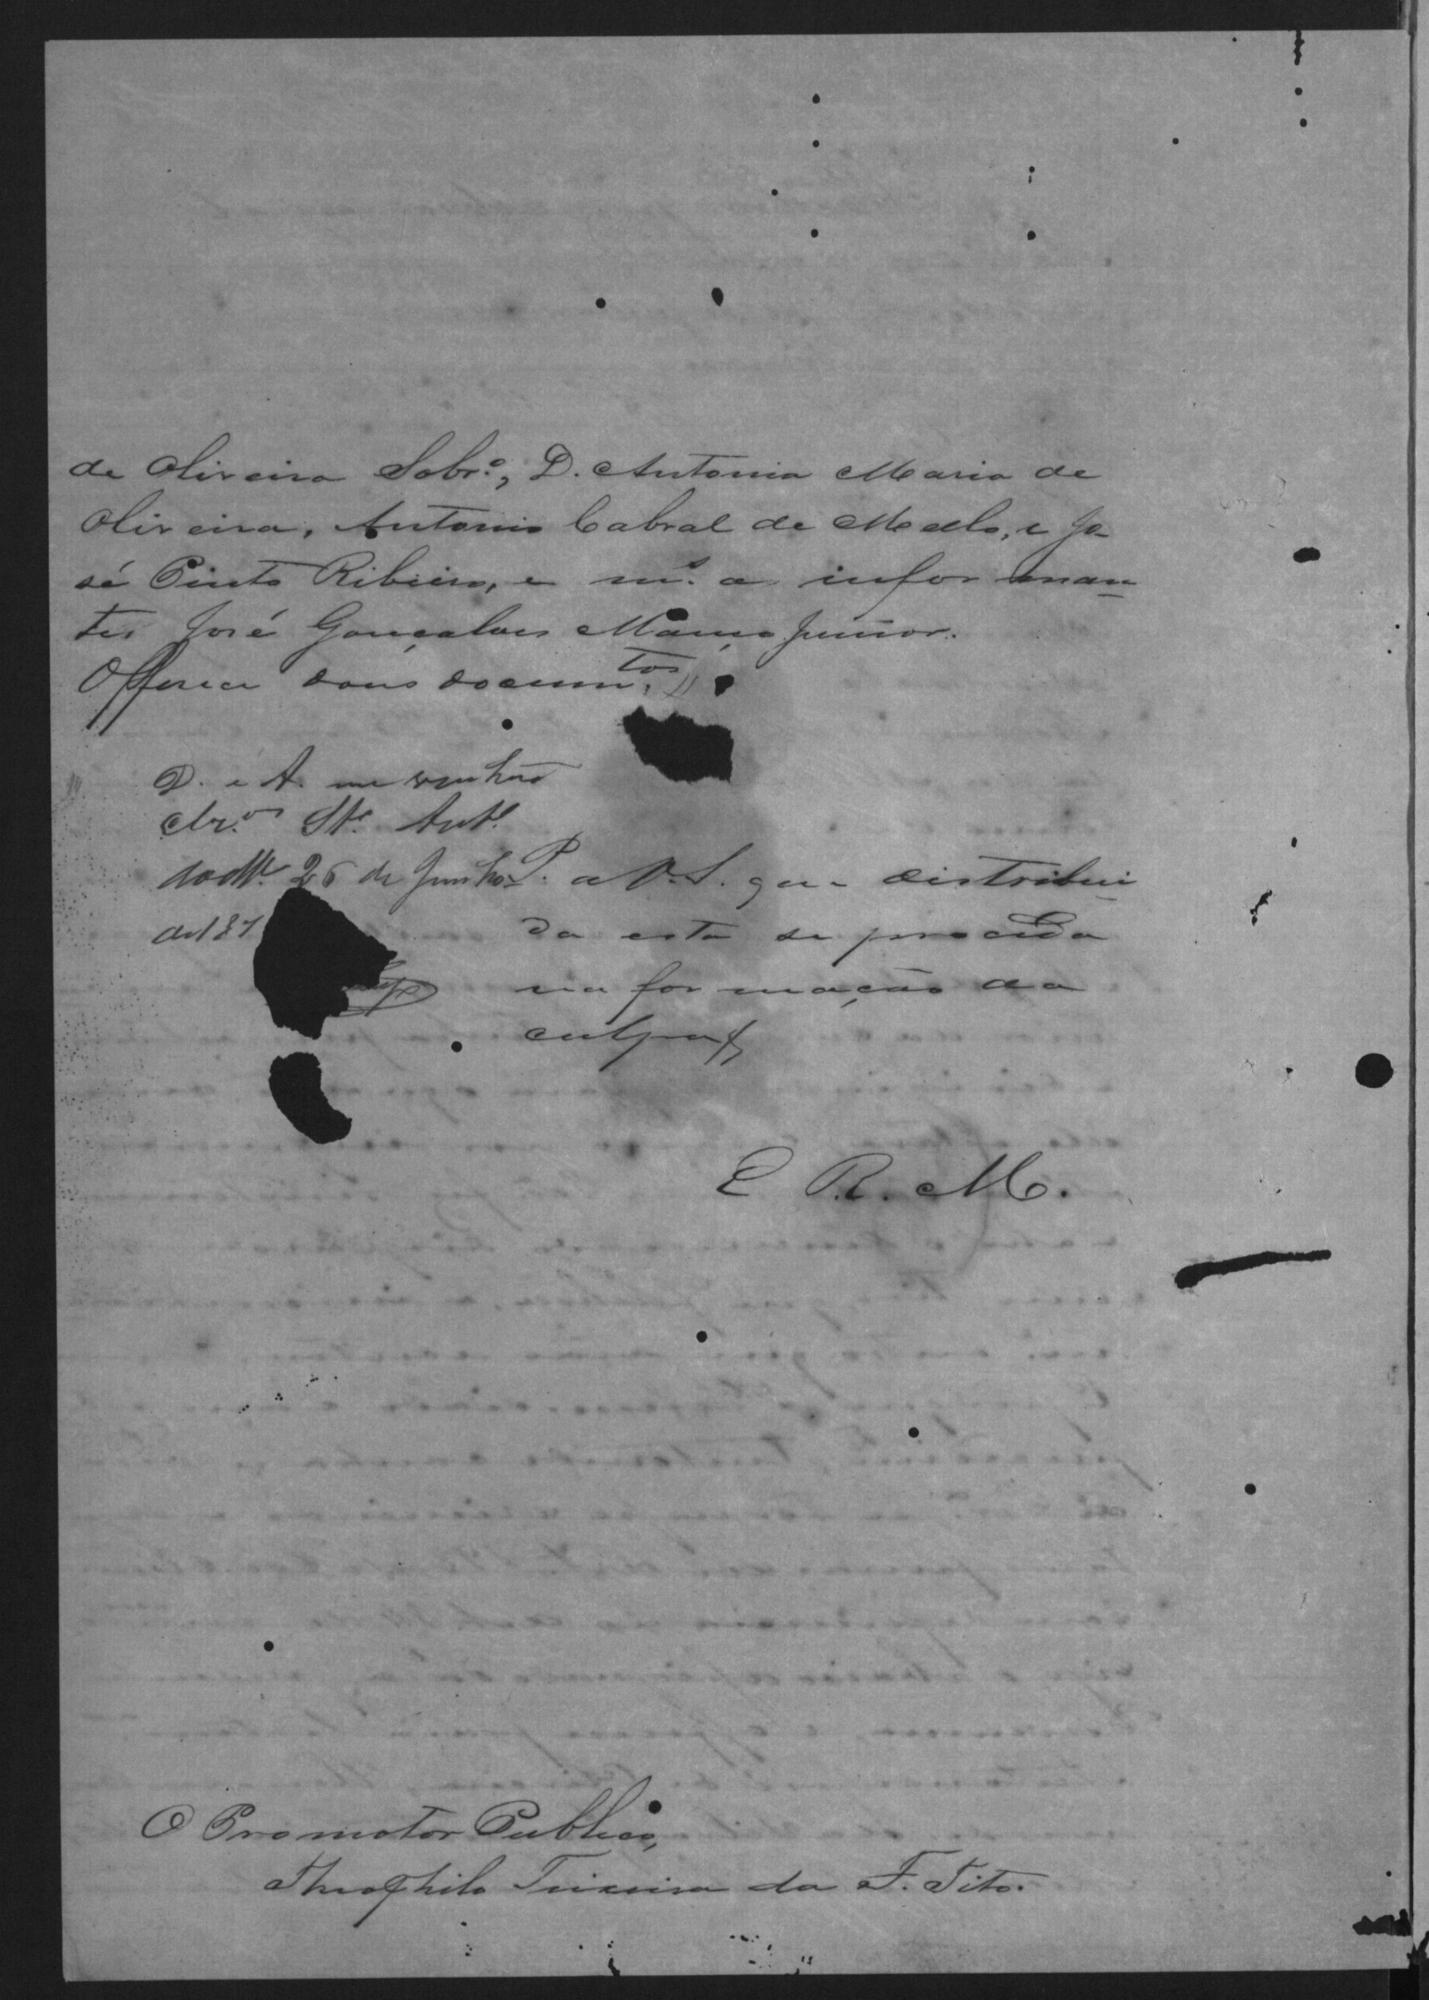 de Oliveira Sobr.º, D. Antonia Maria de
Oliveira, Antonio Cabral de Mello, e Jo-
sé Pinto Ribeiro, e m.s a infor man-
tes José Gonçalves Junior.
Offerece dous docum.tos
D. e A. me venhão
26 de Junho
de 187
P. a V. S. que distribui
da esta se proceda
na formação da
culpa
E. R. M.
O Promotor Publico,
Theophilo Teixeira da F. Tito.